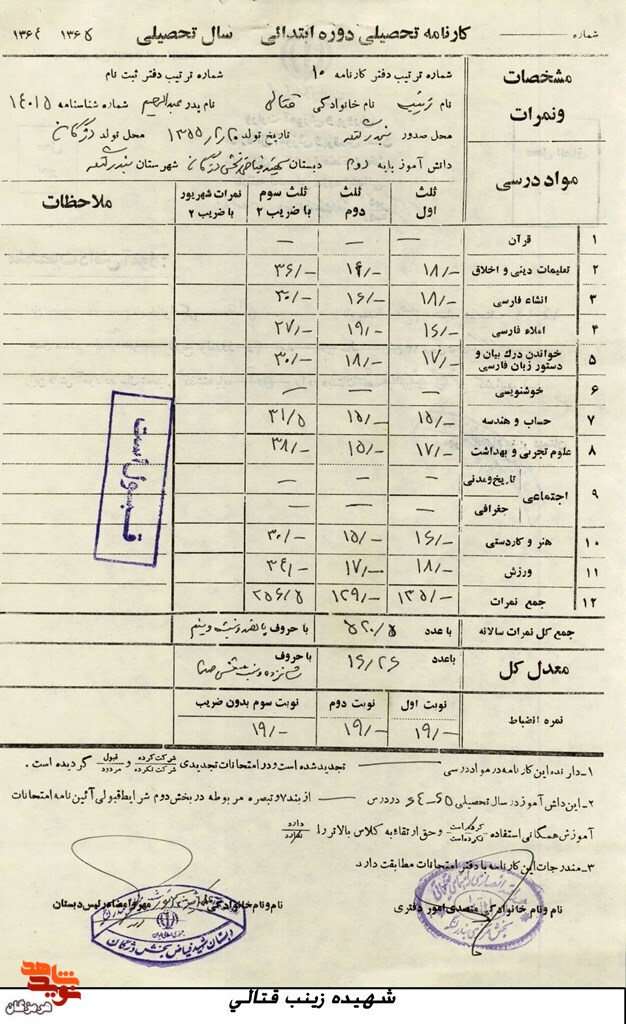 شماره
کارنامه تحصیلی دوره ابتدائی سال تحصیلی ۱۳۶۵ ۱۳۶۴
مشخصات ونمرات
شماره ترتیب دفتر کارنامه ۱۰ شماره ترتیب دفتر ثبت نام
نام زینب نام خانوادگی قتالی نام پدر عبدالرحیم شماره شناسنامه ۱۴۰۱۵
محل صدور بندرلنگه تاریخ تولد ۱۳۵۵ محل تولد دژگان
دانش آموز پایه دوم دبستان شهید فیاض بخش دژگان شهرستان بندرلنگه
مواد درسی
ثلث اول ثلث دوم ثلث سوم با ضریب ۲ نمرات شهریور با ضریب ۲ ملاحظات
۱ قرآن — — —
۲ تعلیمات دینی و اخلاق ۱۸/- ۱۴/- ۳۶/-
۳ انشاء فارسی ۱۸/- ۱۶/- ۳۰/-
۴ املاء فارسی ۱۶/- ۱۹/- ۲۷/-
۵ خواندن درک بیان و دستور زبان فارسی ۱۷/- ۱۸/- ۳۰/-
۶ خوشنویسی — — —
۷ حساب و هندسه ۱۵/- ۱۵/- ۳۱/۵
۸ علوم تجربی و بهداشت ۱۷/- ۱۵/- ۳۸/-
۹ اجتماعی تاریخ و مدنی — — —
جغرافی — — —
۱۰ هنر و کاردستی ۱۶/- ۱۵/- ۳۰/-
۱۱ ورزش ۱۸/- ۱۷/- ۳۴/-
۱۲ جمع نمرات ۱۳۵/- ۱۲۹/- ۲۵۶/۵
قبول است
جمع کل نمرات سالانه باعدد ۵۲۰/۵ با حروف پانصد و بیست و نیم
معدل کل باعدد ۱۶/۲۶ با حروف شانزده و بیست و شش صدم
نمره انضباط نوبت اول نوبت دوم نوبت سوم بدون ضریب
۱۹/- ۱۹/- ۱۹/-
۱- دارنده این کارنامه در مواد درسی تجدید شده است و در امتحانات تجدیدی شرکت کرده شرکت نکرده و قبول مردود گردیده است.
۲- این دانش آموز در سال تحصیلی ۶۵-۶۴ در درس از بند ۷ و تبصره مربوطه در بخش دوم شرایط قبولی آئین نامه امتحانات
آموزش همگانی استفاده کرده است نکرده است و حق ارتقاء به کلاس بالاتر را دارد ندارد
۳- مندرجات این کارنامه با دفتر امتحانات مطابقت دارد
نام و نام خانوادگی متصدی امور دفتری
نام و نام خانوادگی مهر و امضاء رئیس دبستان
جمهوری اسلامی ایران
دبستان شهید فیاض بخش دژگان
شاهد
نوید
هرمزگان
شهیده زینب قتالي